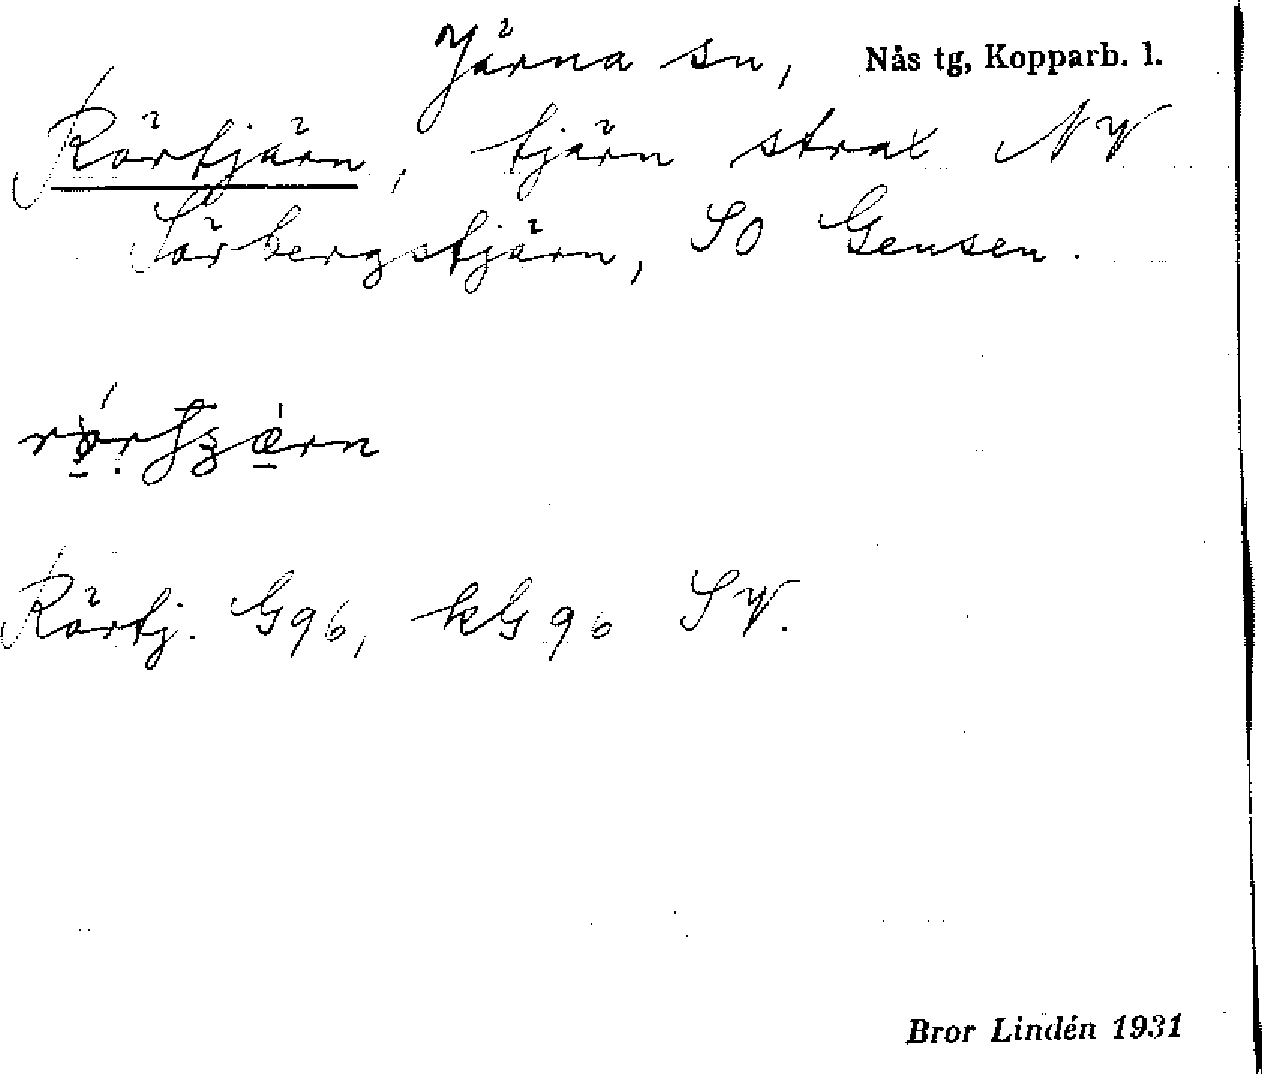 Järna sn, Nås tg, Kopparb. l.
Rörtjärn, tjärn strax NV
Sörbergstjärn, SO Gensen.
Rörtj. G96, kG96 SV.
Bror Lindén 1931